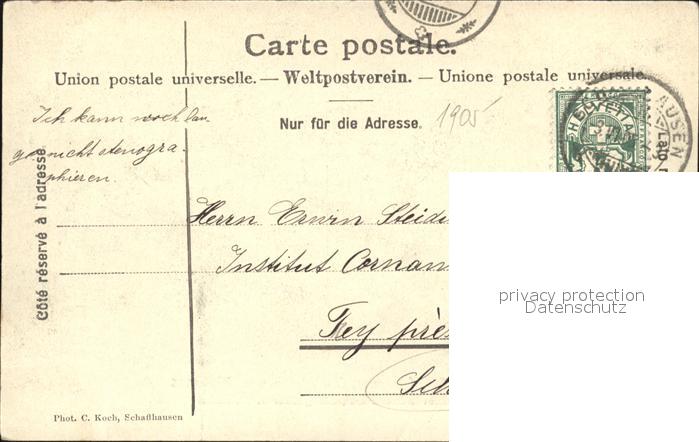 Carte postale.
Union postale universelle. — Weltpostverein. — Unione postale universale.
Nur für die Adresse.
1905
HELVETIA
AUSEN
Ich kann noch
nicht stenogra-
phieren.
Côté réservé à l'adresse.
Herrn Erwin Steid
Institut Cornam
Fey près
privacy protection
Datenschutz
Phot. C. Koch, Schaffhausen